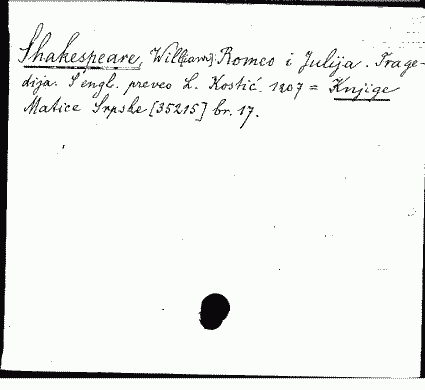 Shakespeare, Will[iam]: Romeo i Julija. Trage-
dija. S engl. preveo L. Kostić. 1907 = Knjige
Matice Srpske [35215] br. 17.